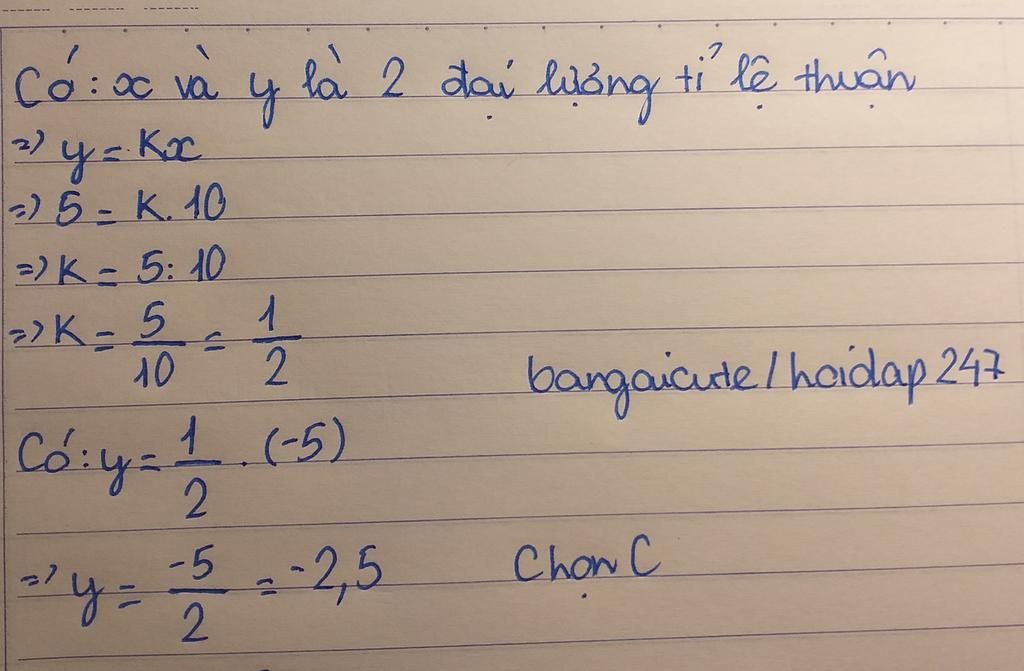 Có: x và y là 2 đại lượng tỉ lệ thuận
=> y = Kx
=> 5 = K. 10
=> K = 5: 10
=> K = 5/10 = 1/2
bangaicute/hoidap247
Có: y = 1/2 . (-5)
=> y = -5/2 = -2,5 Chọn C